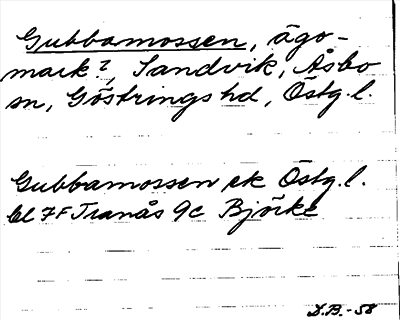 Gubbamossen, ägo-
mark?, Sandvik, Åsbo
sn, Göstrings hd, Östg. l.
Gubbamossen ek Östg. l.
bl 7F Tranås 9c Björke
D.B.-58